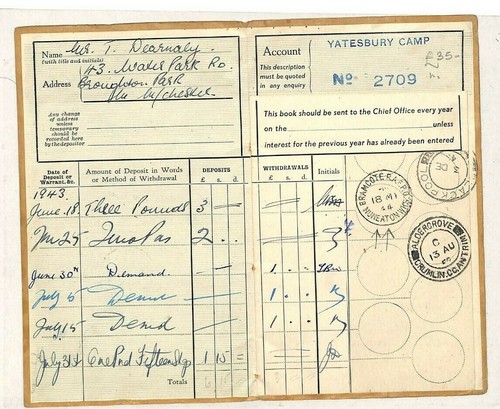 Name Mr. T. Dearnaly.
(with title and initials)
43, Water Park Rd.
Address Broughton Park
M'chester.
Any change of address unless temporary should be recorded here by the depositor
Account
This description must be quoted in any enquiry
YATESBURY CAMP
No 2709
35-
This book should be sent to the Chief Office every year
on the unless
interest for the previous year has already been entered
Date of Deposit or Warrant, &c. Amount of Deposit in Words or Method of Withdrawal DEPOSITS £ s. d. WITHDRAWALS £ s. d. Initials
1943
June. 18. Three Pounds 3 —
2 . .
June 30th Demand. — 1 . .
July 5 Demd — 1 . .
July 15 Demd — 1 . .
July 31st One Pnd Fifteen Slgs 1 15 =
Totals
BRAMCOTE R.A.F. P.O.
18 MY
44
NUNEATON
BLACKPOOL
ALDERGROVE
C
13 AU
CRUMLIN. CO. ANTRIM